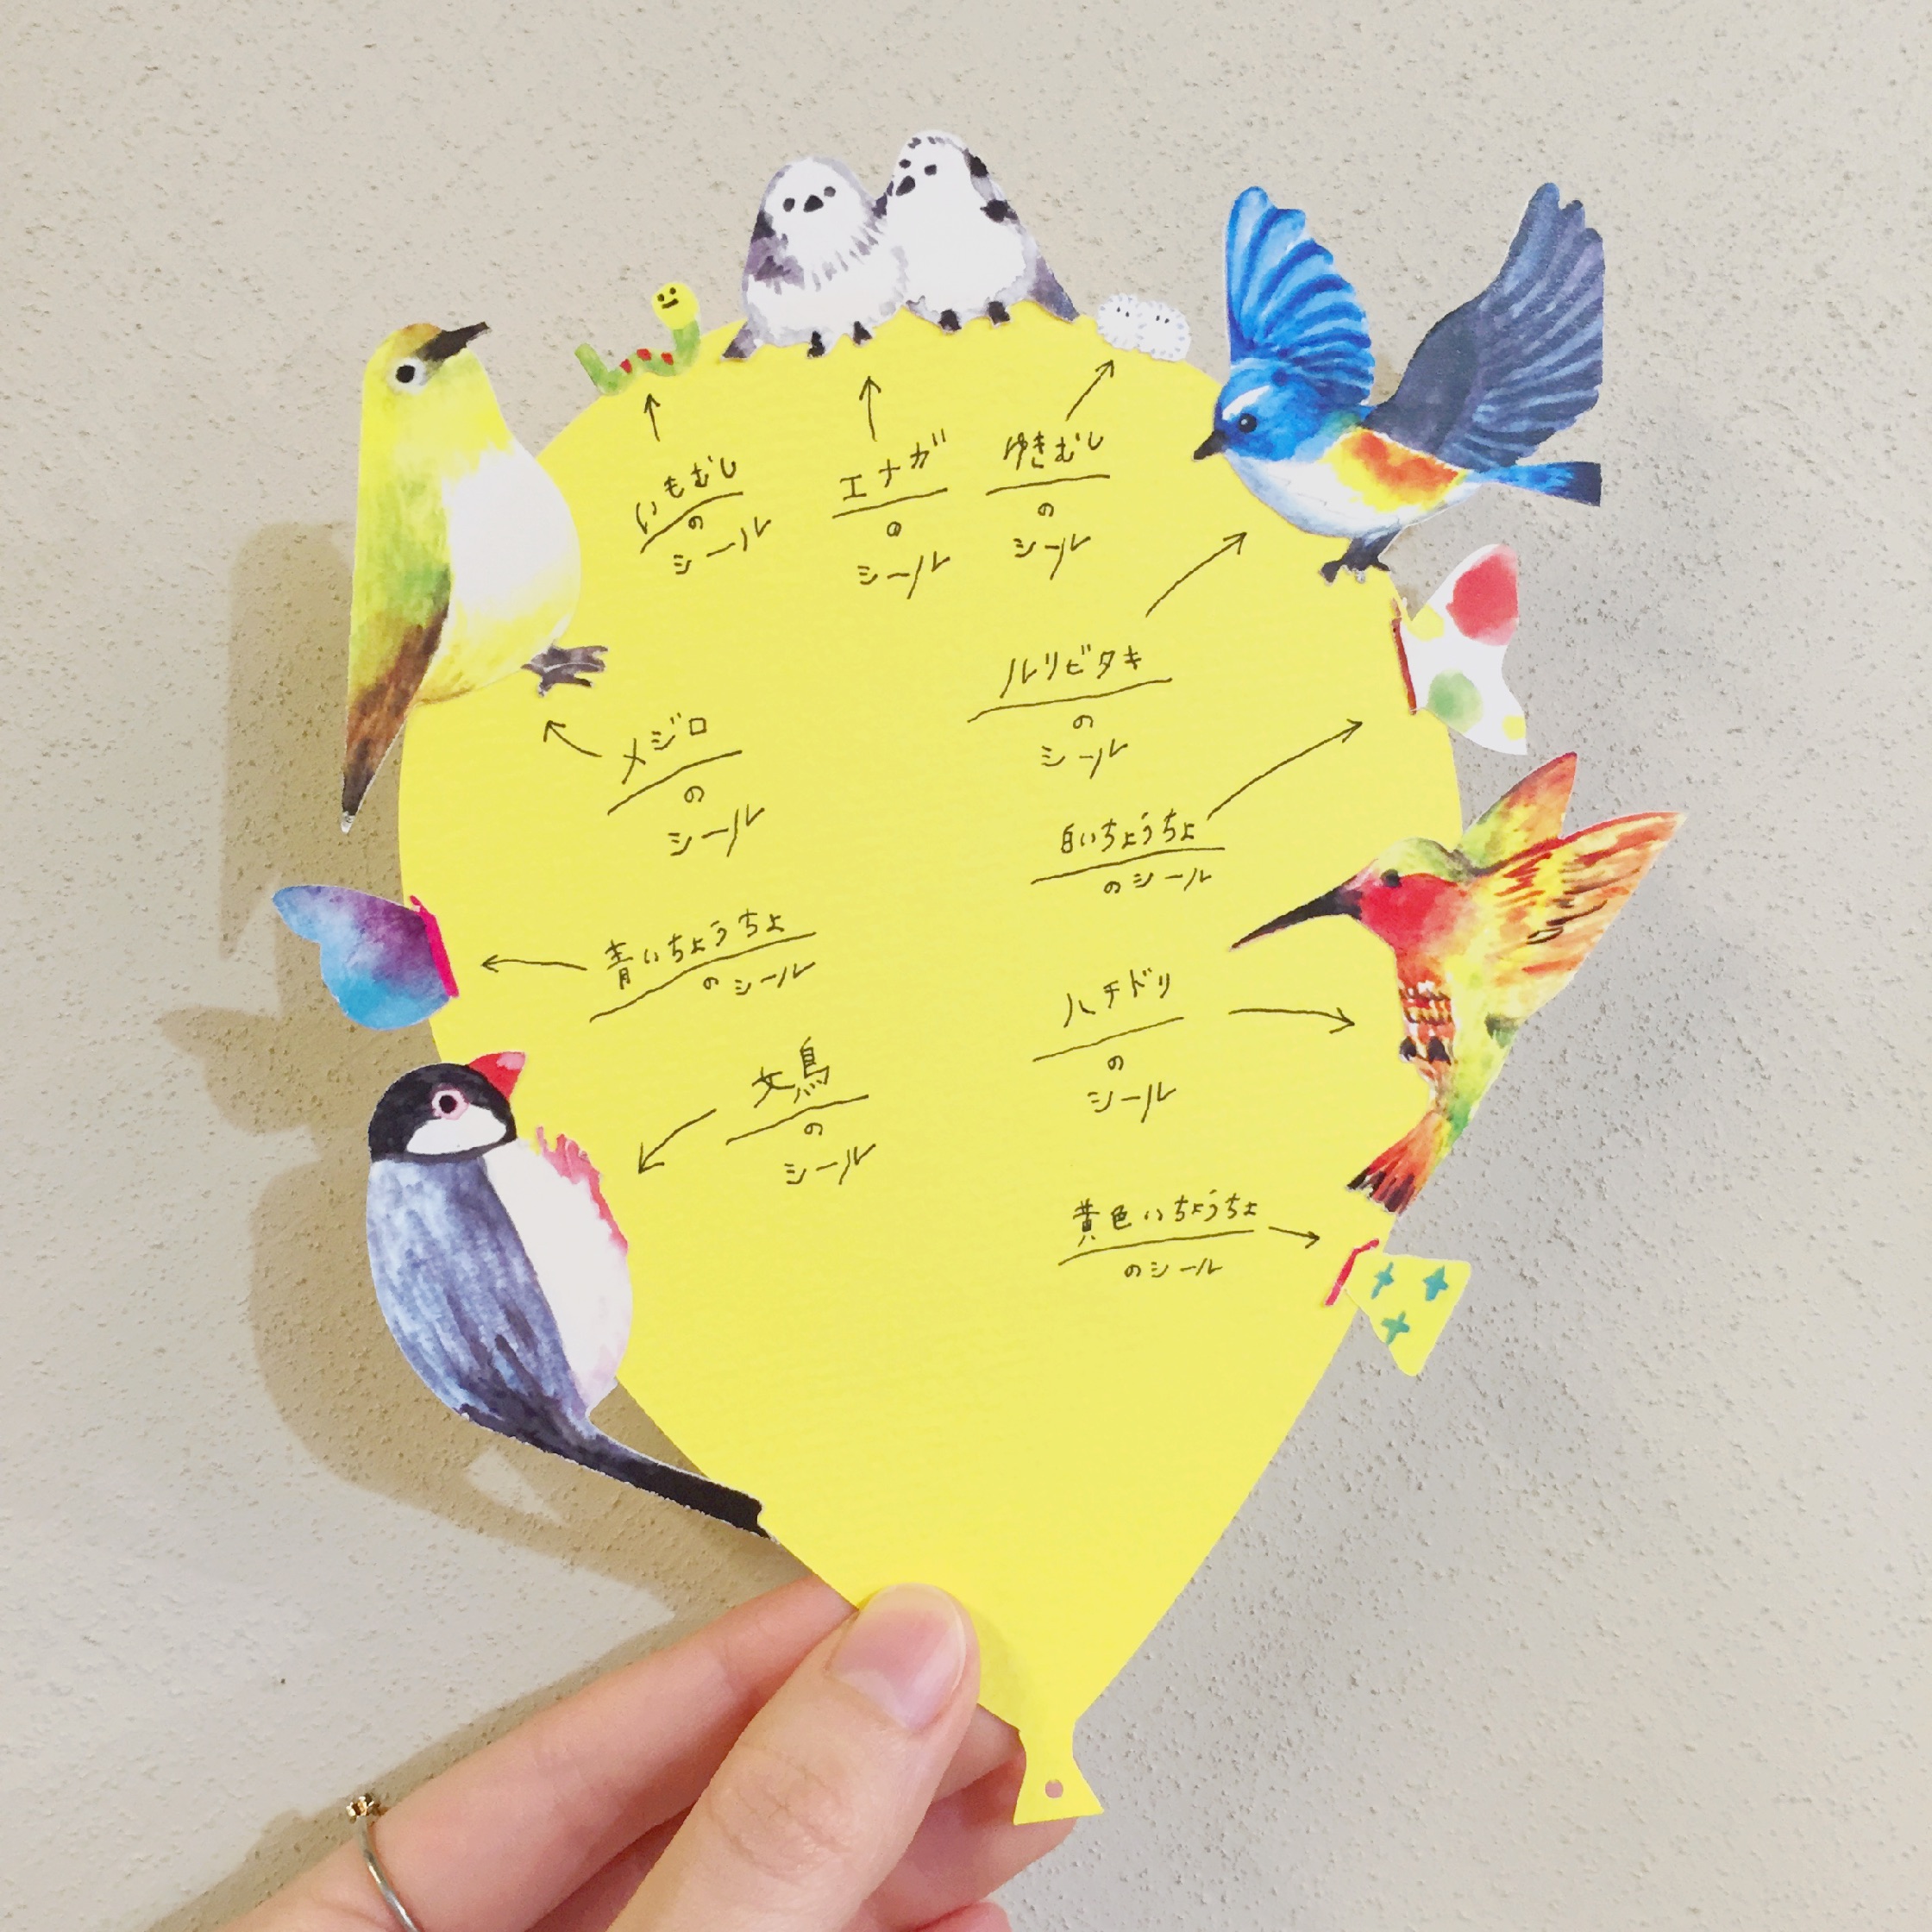 いもむし
の
シール
エナガ
の
シール
ゆきむし
の
シール
ルリビタキ
の
シール
メジロ
の
シール
白いちょうちょ
のシール
青いちょうちょ
のシール
ハチドリ
の
シール
文鳥
の
シール
黄色いちょうちょ
のシール